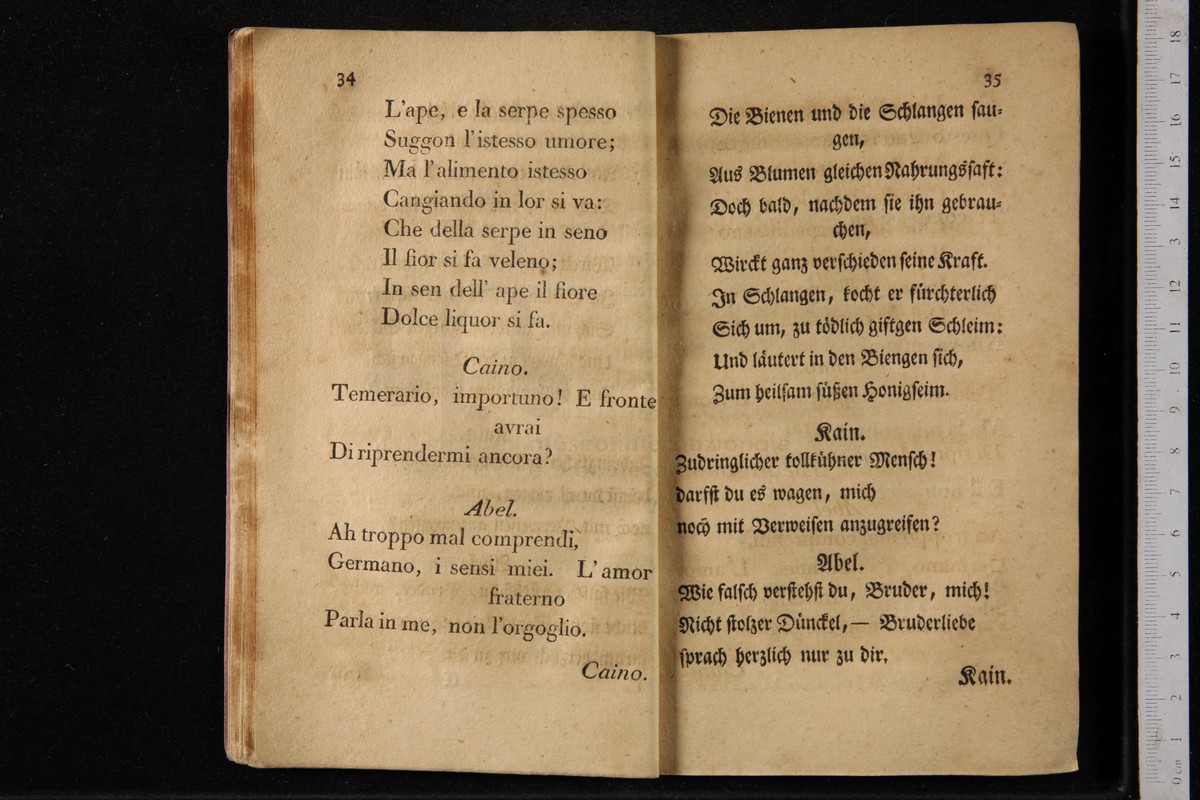 34
L'ape, e la serpe spesso
Suggon l'istesso umore;
Ma l'alimento istesso
Cangiando in lor si va:
Che della serpe in seno
Il fior si fa veleno;
In sen dell' ape il fiore
Dolce liquor si fa.
Caino.
Temerario, importuno! E fronte
avrai
Di riprendermi ancora?
Abel.
Ah troppo mal comprendi,
Germano, i sensi miei. L'amor
fraterno
Parla in me, non l'orgoglio.
Caino.
35
Die Bienen und die Schlangen sau-
gen,
Aus Blumen gleichen Nahrungssaft:
Doch bald, nachdem sie ihn gebrau-
chen,
Wirckt ganz verschieden seine Kraft.
In Schlangen, kocht er fürchterlich
Sich um, zu tödlich giftgen Schleim:
Und läutert in den Biengen sich,
Zum heilsam süßen Honigseim.
Kain.
Zudringlicher tollkühner Mensch!
darfst du es wagen, mich
noch mit Verweisen anzugreifen?
Abel.
Wie falsch verstehst du, Bruder, mich!
Nicht stolzer Dünckel,— Bruderliebe
sprach herzlich nur zu dir.
Kain.
0 cm 1 2 3 4 5 6 7 8 9 10 11 12 3 14 15 16 17 18